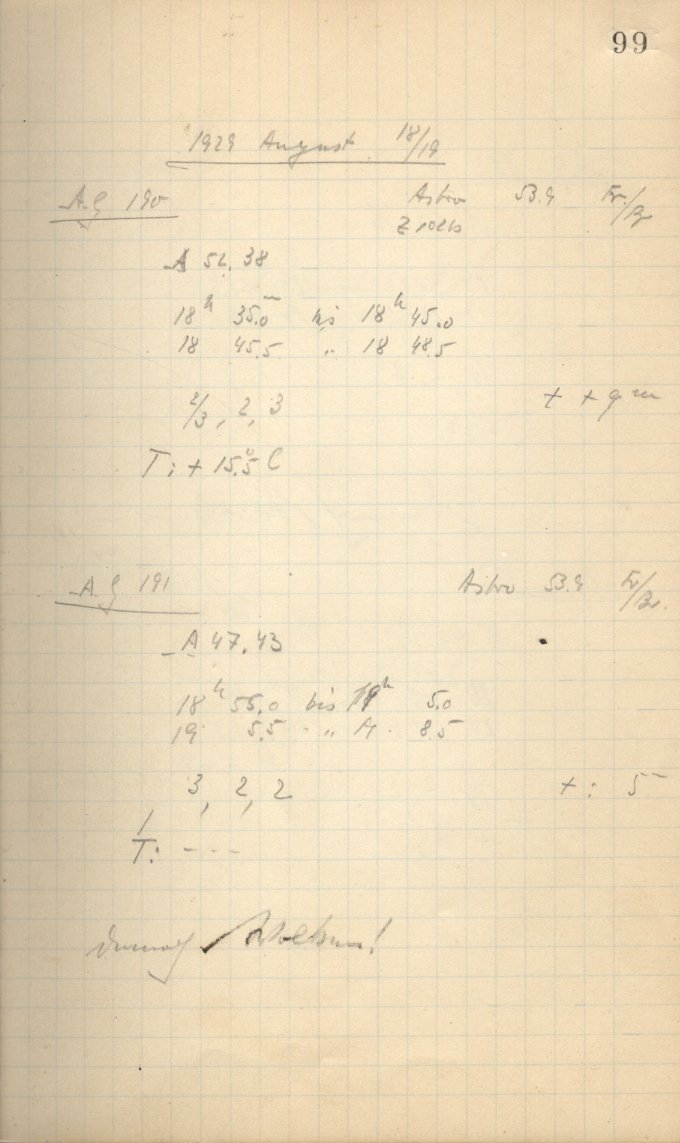 99
1929 August 18/19
A.G 190 Astro 53.9 Fr./Br
A 52.38
18h 35.0m bis 18h 45.0
18 45.5 " 18 48.5
2/3, 2, 3 + + 9m
T: + 15.5° C
A G 191 Astro 53.9 Fr/Br.
A 47.43
18h 55.0 bis 19h 5.0
19 5.5 " 19 8.5
3, 2, 2 + : 5m
T: ---
danach Wolken!